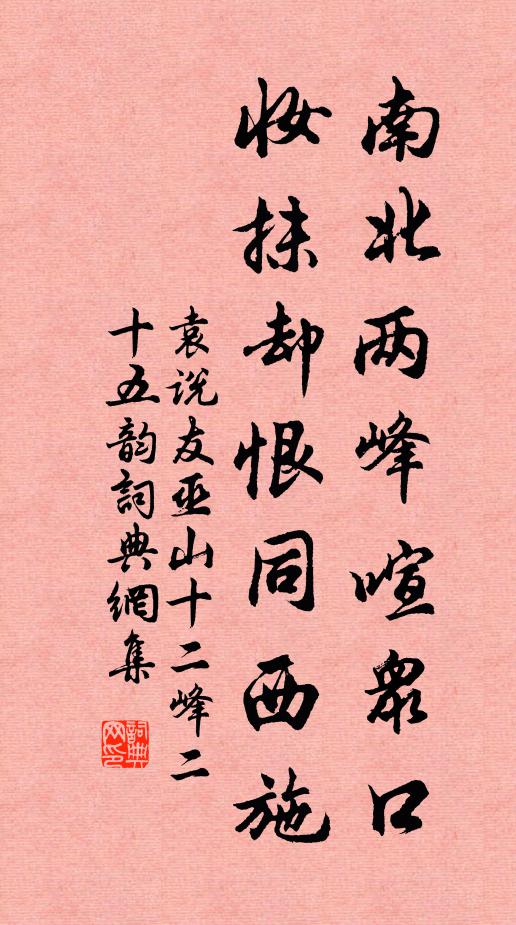 南北两峰喧眾口
妆抹却恨同西施
袁说友巫山十二峰二
十五韵詞典網集
詞典网印